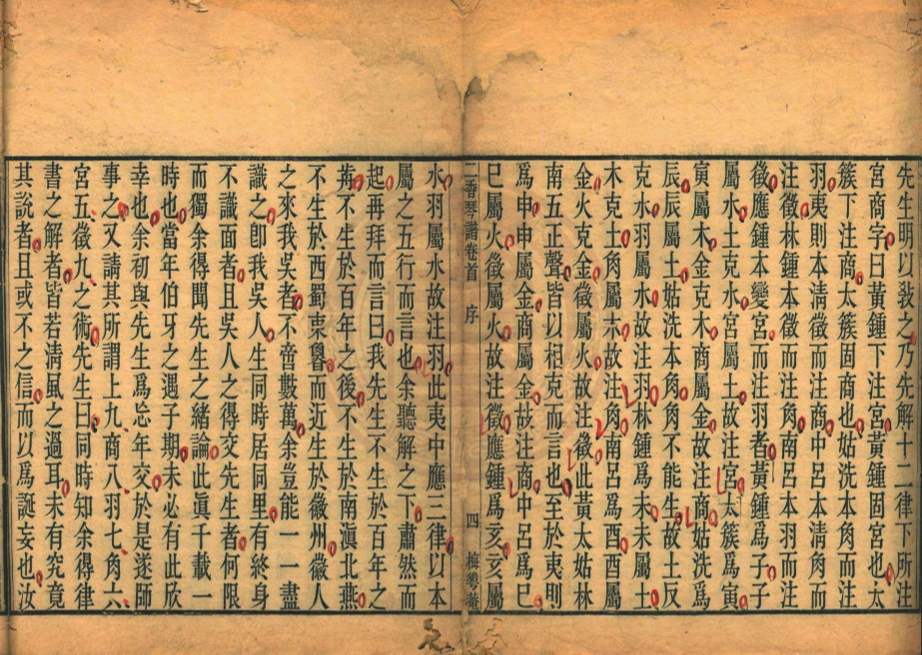 先生明以敎之乃先解十二律下所注
宮商字曰黃鍾下注宮黃鍾固宮也太
簇下注商太簇固商也姑洗本角而注
羽夷則本淸徵而注商中呂本淸角而
注徵林鍾本徵而注角南呂本羽而注
徵應鍾本變宮而注羽者黃鍾爲子子
屬水土克水宮屬土故注宮太簇爲寅
寅屬木金克木商屬金故注商姑洗爲
辰辰屬土姑洗本角角不能生故土反
克水羽屬水故注羽林鍾爲未未屬土
木克土角屬木故注角南呂爲酉酉屬
金火克金徵屬火故注徵此黃太姑林
南五正聲皆以相克而言也至於夷則
爲申申屬金商屬金故注商中呂爲巳
巳屬火徵屬火故注徵應鍾爲亥亥屬
二香琴譜卷首 序 四
水羽屬水故注羽此夷中應三律以本
屬之五行而言也余聽解之下肅然而
起再拜而言曰我先生不生於百年之
前不生於百年之後不生於南滇北燕
不生於西蜀東魯而近生於徽州徽人
之來我吳者不啻數萬余豈能一一盡
識之卽我吳人生同時居同里有終身
不識面者且吳人之得交先生者何限
而獨余得聞先生之緖論此眞千載一
時也當年伯牙之遇子期未必有此欣
幸也余初與先生爲忘年交於是遂師
事之又請其所謂上九商八羽七角六
宮五徵九之術先生曰同時知余得律
書之解者皆若淸風之過耳未有究竟
其說者且或不之信而以爲誕妄也汝